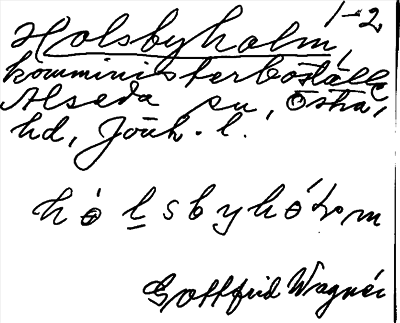 1-2
Holsbyholm,
komministerboställe
Alseda sn, Östra
hd, Jönk. l.
hȯlsbyhȯ́lm
Gottfrid Wagnér